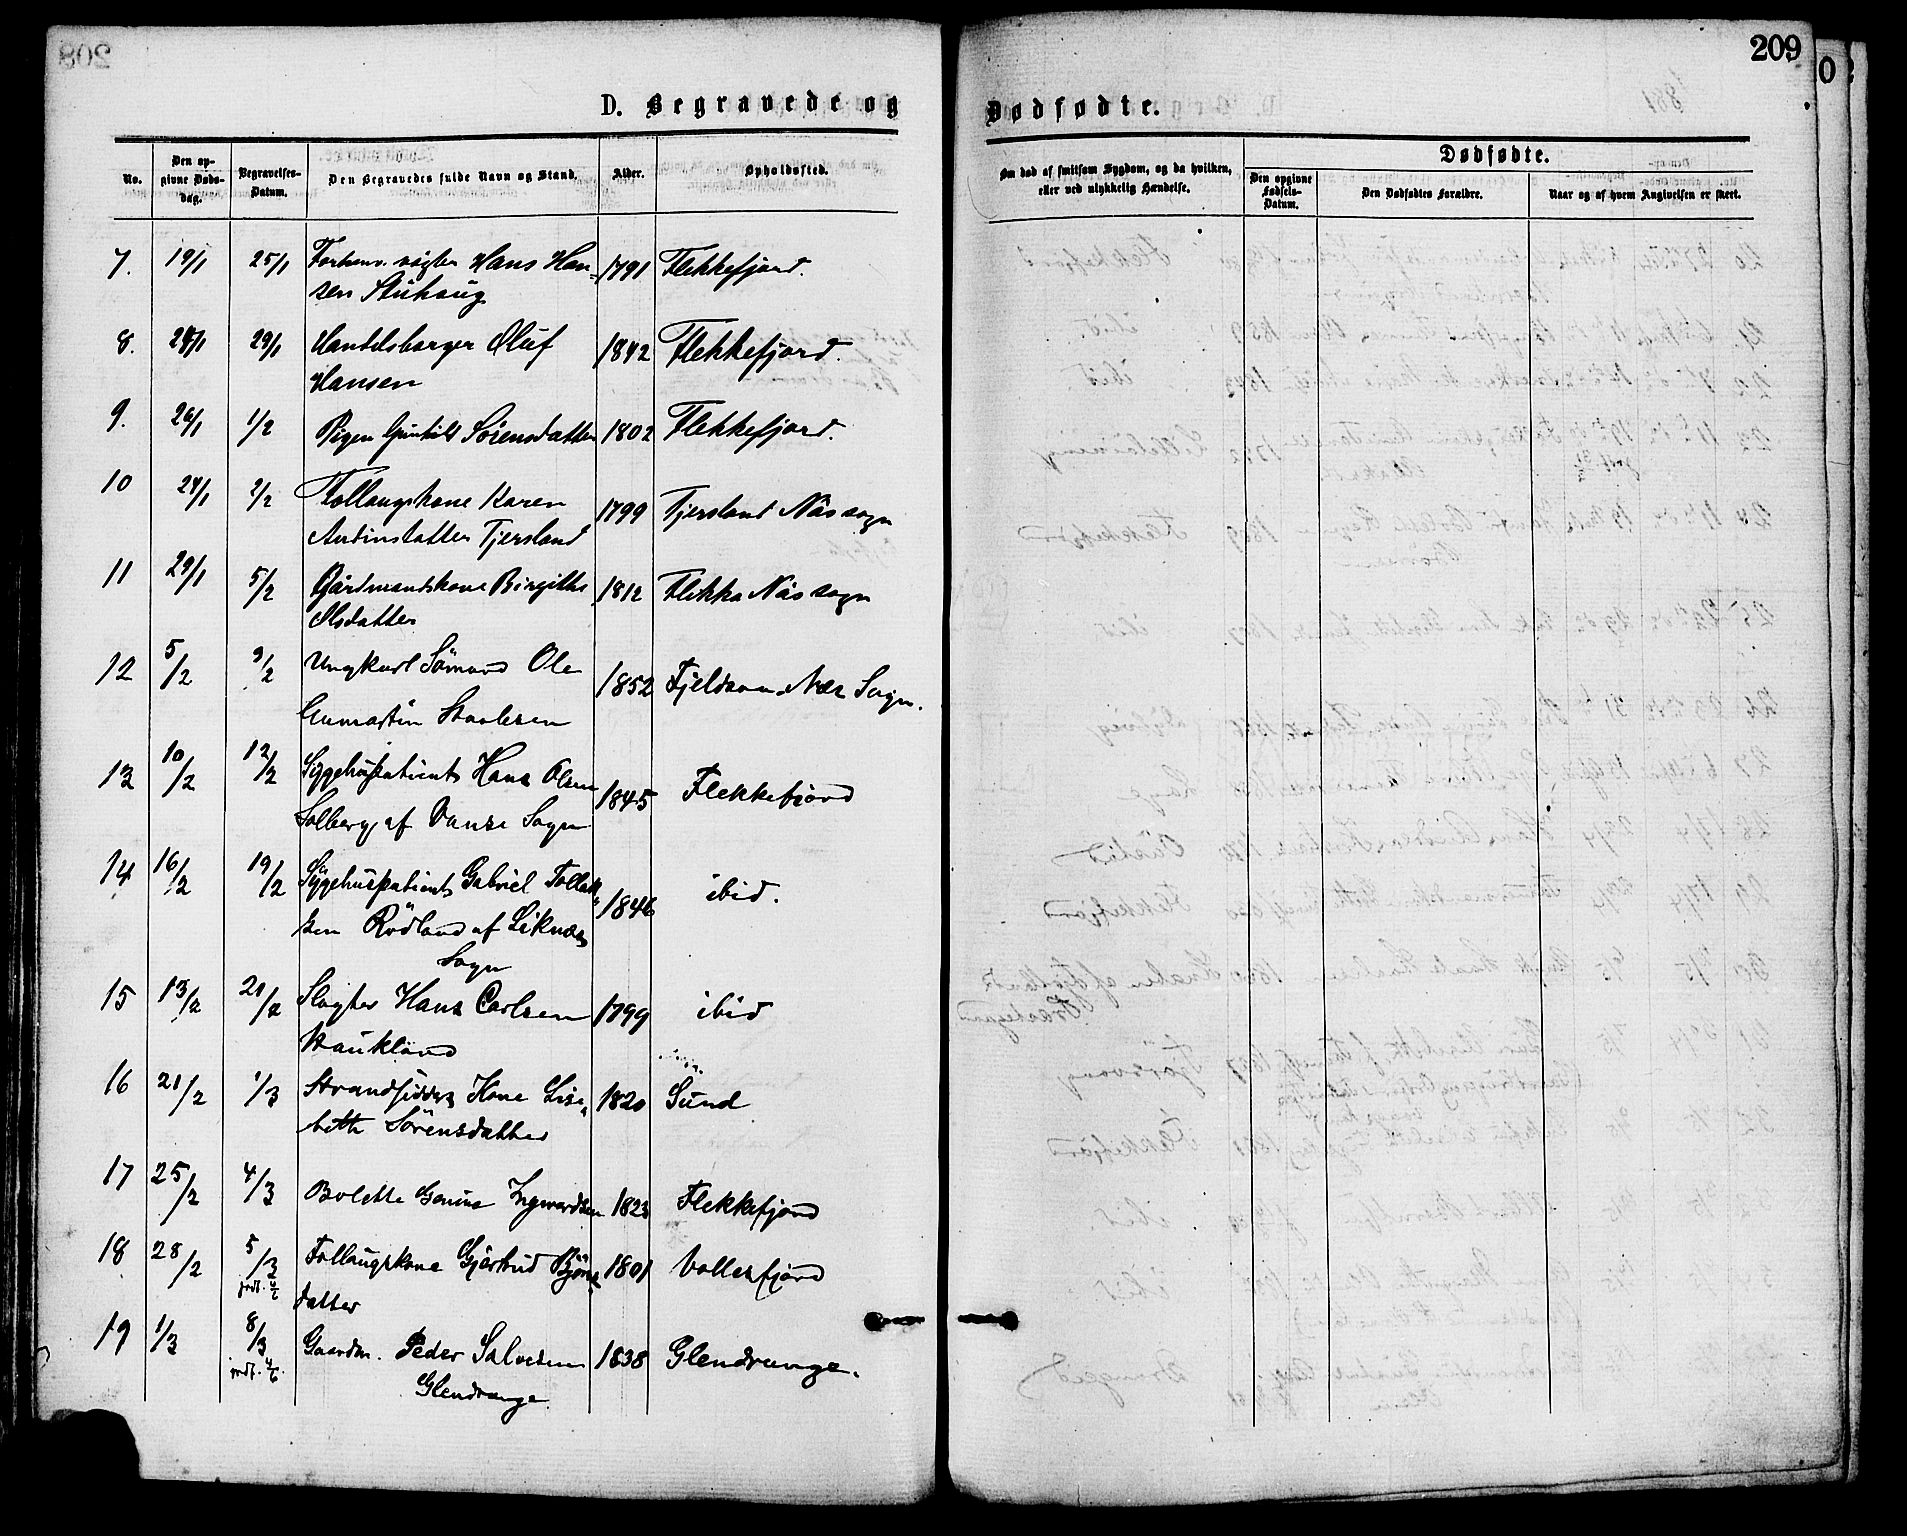 209
D. Begravede og Dødfødte.
No. Den opgivne Dødsdag. Begravelses-Datum. Den Begravedes fulde Navn og Stand. Alder. Opholdssted.
Om død af smitsom Sygdom, og da hvilken, eller ved ulykkelig Hændelse.
Dødfødte.
Den opgivne Fødsels-Datum. Den Dødfødtes Forældre. Naar og af hvem Angivelsen er skeet.
7. 19/1 25/1 Forhenv. vægter Hans Han- 1791 Flekkefjord.
sen Stuhaug
8. 24/1 29/1 Handelsborger Oluf 1842 Flekkefjord.
Hansen
9. 26/1 1/2 Pigen Gunhild Sörensdatter 1802 Flekkefjord.
10 24/1 2/2 Follaugskone Karen 1799 Tjersland Näs sogn
Andinsdatter Tjersland
11 29/1 5/2 Gårdmandskone Birgithe 1812 Flikka Näs sogn
Olsdatter
12 5/2 9/2 Ungkarl Sömand Ole 1852 Fjeldsaa Næs Sogn.
Gumastin Staalesen
13 10/2 12/2 Sygehuspatient Hans Olsen 1845 Flekkefjord
Solberg af Vanse Sogn
14 16/2 19/2 Sygehuspatient Gabriel Tollak- 1846 ibid.
sen Rödland af Liknæs
Sogn
15 13/2 21/2 Slagter Hans Carlsen 1799 ibid
Haukland
16 21/2 1/3 Strandsidders Kone Lisa- 1820 Sund
beth Sörensdatter
17 25/2 4/3 Bolette Gurine Ingwardsen 1823 Flekkefjord
18 28/2 5/3 Follaugskone Gjertrud Björns- 1801 Vollesfjord
jordf. 4/6 datter
19 1/3 8/3 Gaardm. Peder Salvesen 1838 Glendrange.
jordf. 4/6 Glendrange